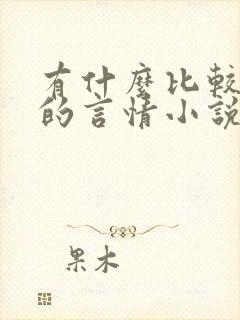 有什麼比較
的言情小說
果木